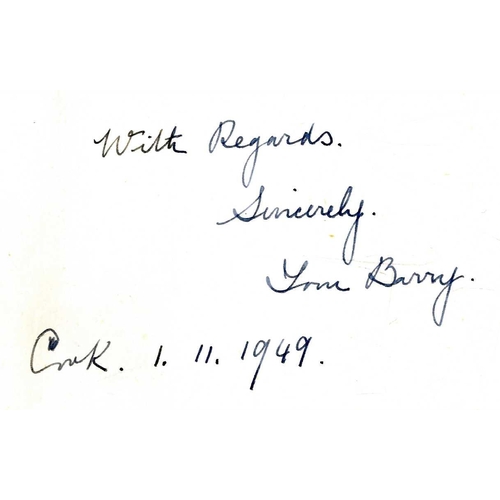 With Regards.
Sincerely.
Tom Barry.
Cork. 1. 11. 1949.